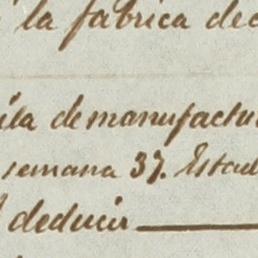 la fabrica de
de manufactu
semana 37. Estad
deducir